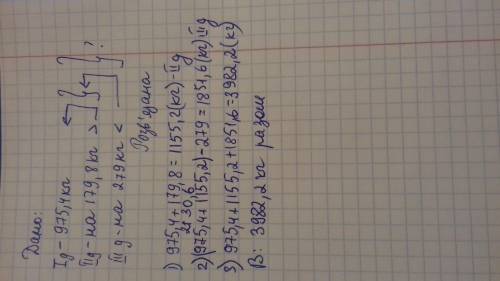 Дано:
Iд - 975,4 кг
IIд - на 179,8 кг >
IIIд - на 279 кг < ?
Розв'язання
1) 975,4 + 179,8 = 1155,2 (кг) - IIд
2130,6
2) (975,4 + 1155,2) - 279 = 1851,6 (кг) IIIд
3) 975,4 + 1155,2 + 1851,6 = 3982,2 (кг)
В: 3982,2 кг разом